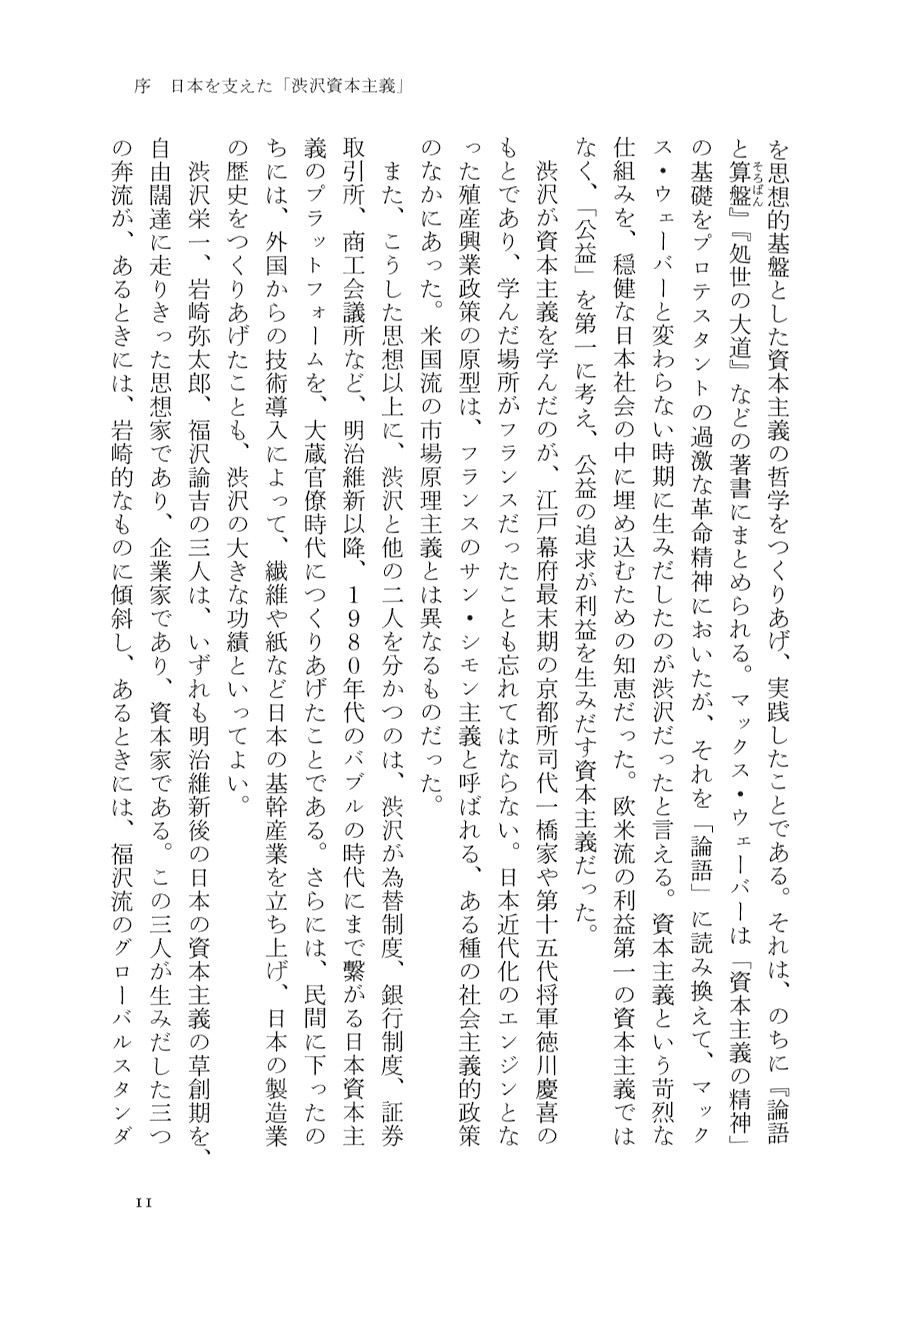 序　日本を支えた「渋沢資本主義」
を思想的基盤とした資本主義の哲学をつくりあげ、実践したことである。それは、のちに『論語
と算盤』『処世の大道』などの著書にまとめられる。マックス・ウェーバーは「資本主義の精神」
そろばん
の基礎をプロテスタントの過激な革命精神においたが、それを「論語」に読み換えて、マック
ス・ウェーバーと変わらない時期に生みだしたのが渋沢だったと言える。資本主義という苛烈な
仕組みを、穏健な日本社会の中に埋め込むための知恵だった。欧米流の利益第一の資本主義では
なく、「公益」を第一に考え、公益の追求が利益を生みだす資本主義だった。
渋沢が資本主義を学んだのが、江戸幕府最末期の京都所司代一橋家や第十五代将軍徳川慶喜の
もとであり、学んだ場所がフランスだったことも忘れてはならない。日本近代化のエンジンとな
った殖産興業政策の原型は、フランスのサン・シモン主義と呼ばれる、ある種の社会主義的政策
のなかにあった。米国流の市場原理主義とは異なるものだった。
また、こうした思想以上に、渋沢と他の二人を分かつのは、渋沢が為替制度、銀行制度、証券
取引所、商工会議所など、明治維新以降、1980年代のバブルの時代にまで繫がる日本資本主
義のプラットフォームを、大蔵官僚時代につくりあげたことである。さらには、民間に下ったの
ちには、外国からの技術導入によって、繊維や紙など日本の基幹産業を立ち上げ、日本の製造業
の歴史をつくりあげたことも、渋沢の大きな功績といってよい。
渋沢栄一、岩崎弥太郎、福沢諭吉の三人は、いずれも明治維新後の日本の資本主義の草創期を、
自由闊達に走りきった思想家であり、企業家であり、資本家である。この三人が生みだした三つ
の奔流が、あるときには、岩崎的なものに傾斜し、あるときには、福沢流のグローバルスタンダ
11